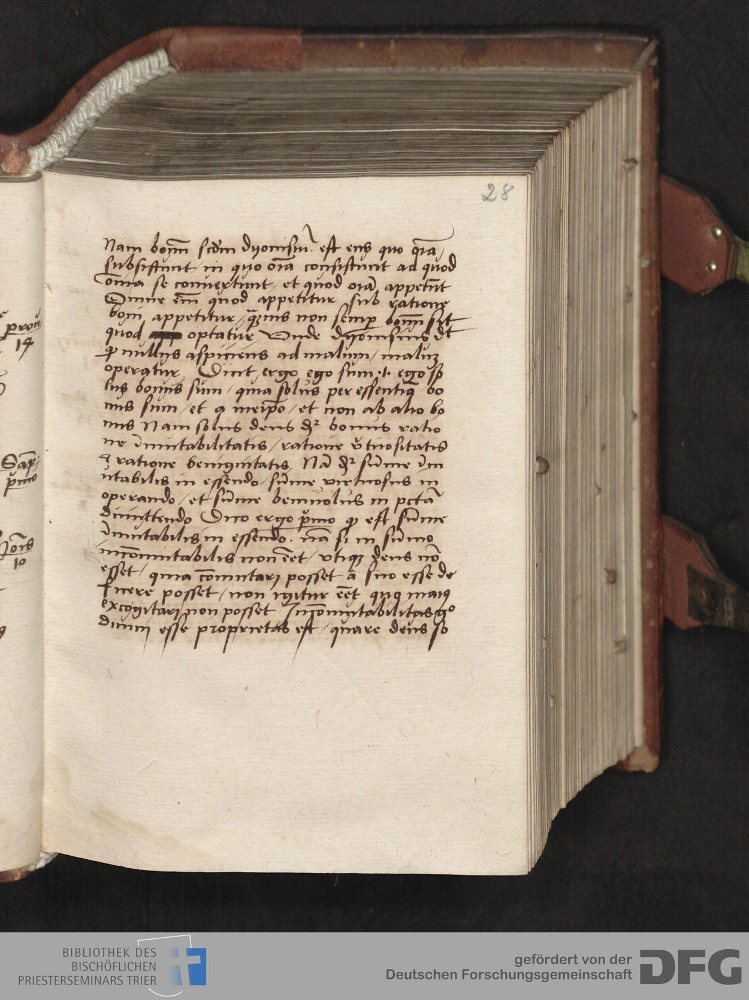 28
Nam bonū scdm dyonisiū est ens quo oīa
subsistunt in quo oīa consistunt ad quod
omīa se conuertunt et quod oīa appetūt
Omne em̄ quod appetitur sub ratione
boni appetitur quis non semp bonū sit
quod optatur Vnde dyonisius dt
ꝙ nullus aspiciens ad malum malū
operatur Dicit ergo ego sum .i. ego so
lus bonus sum quia solus per essentiā bo
nus sum et a meipō et non ab alio bo
nus Nam solus deus dr bonus ratio
ne īmutabilitatis ratione v̄tuositatis
ratione benignitatis Nā dr sūme īm
utabilis in essendo sūme virtuosus in
operando et sūme beniuolus in pctā
dimittendo Dico ergo pmo ꝙ est sūme
īmutabilis in essendo nā si in sūmo
incōmutabilis non eēt vtiqȝ deus nō
esset quia cōmutari posset a suo esse de
ficere posset non igitur eēt quo maiꝰ
excogitari non posset Incōmutabilitas gͦ
diuini esse proprietas est quare deus so
prou
19
Sap
pmo
Joīs
10
BIBLIOTHEK DES
BISCHÖFLICHEN
PRIESTERSEMINARS TRIER
gefördert von der
Deutschen Forschungsgemeinschaft
DFG